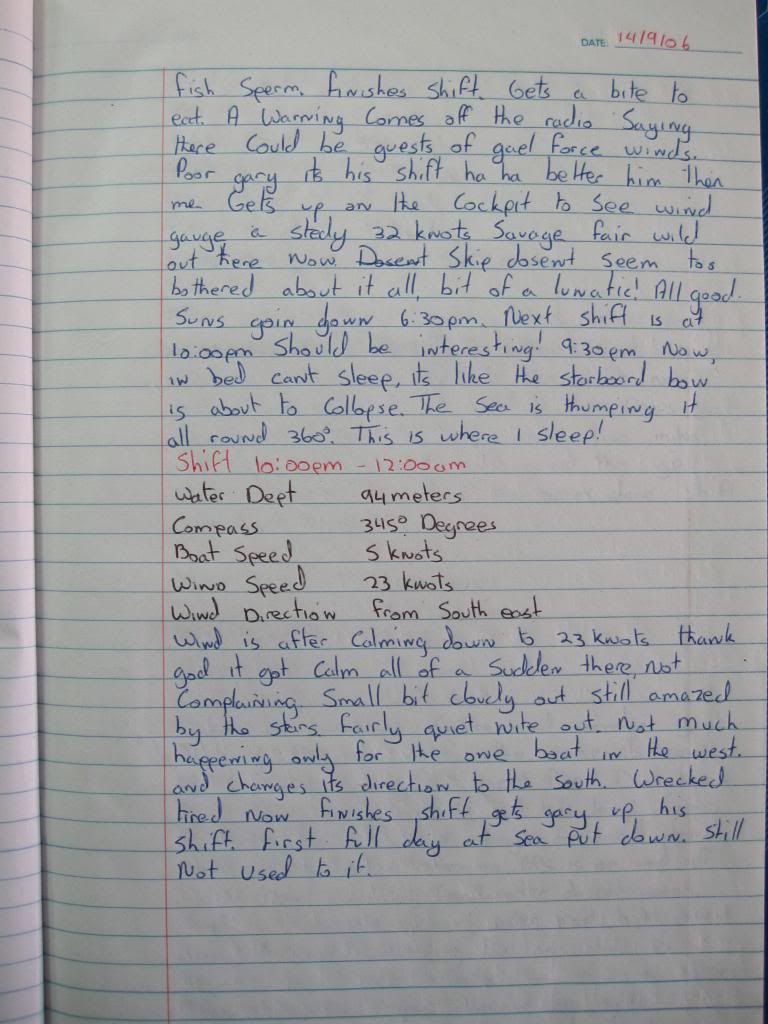 DATE: 14/9/06
fish Sperm. finishes shift. Gets a bite to
eat. A Warning Comes off the radio Saying
there Could be guests of gael force winds.
Poor gary its his shift ha ha better him then
me Gets up on the Cockpit to See wind
gauge a stedy 32 knots Savage fair wild
out there Now. Dosent Skip dosent seem tos
bothered about it all, bit of a lunatic! All good.
Suns goin down 6:30pm. Next shift is at
10:00pm Should be interesting! 9:30pm Now,
in bed cant sleep, its like the starboard bow
is about to Collapse. The Sea is thumping it
all round 360°. This is where I sleep!
Shift 10:00pm - 12:00am
Water Dept 94 meters
Compass 345° Degrees
Boat Speed 5 knots
Wind Speed 23 knots
Wind Direction from South east
Wind is after Calming down to 23 knots thank
god it got Calm all of a Sudden there, Not
Complaining. Small bit cloudy out still amazed
by the stars. Fairly quiet nite out. Not much
happening only for the one boat in the west.
and changes its direction to the south. Wrecked
tired Now finishes shift gets gary up his
shift. first full day at sea put down. Still
Not used to it.